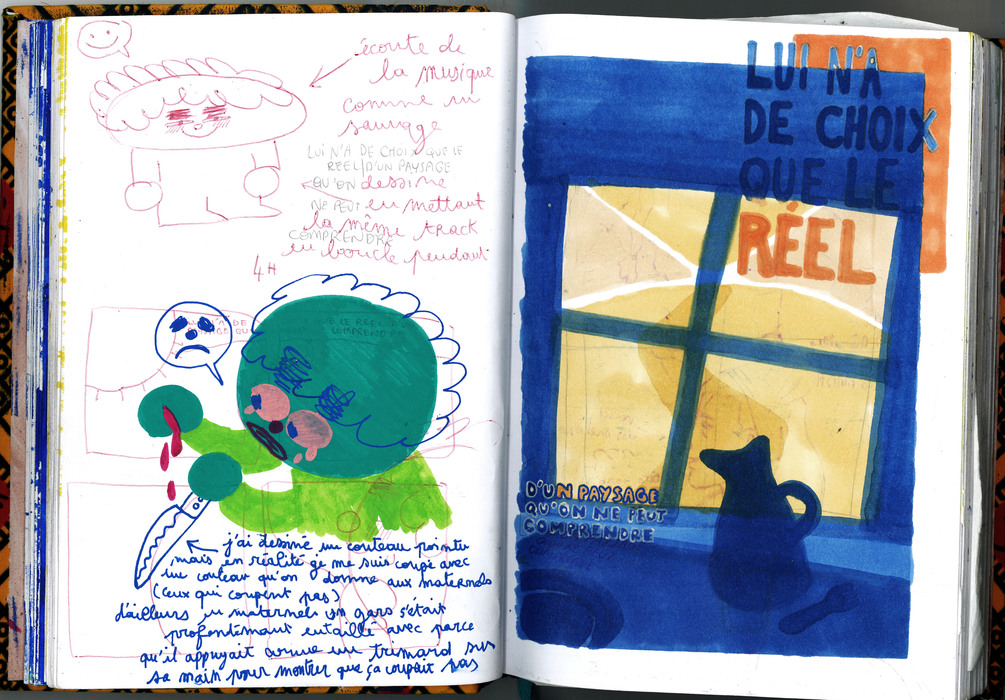 écoute de
la musique
comme un
sauvage
LUI N'A DE CHOIX QUE LE
REEL D'UN PAYSAGE
QU'ON dessine
NE PEUT en mettant
la même track
COMPRENDRE
en boucle pendant
4H
j'ai dessiné un couteau pointu
mais en réalité je me suis coupé avec
un couteau qu'on donne aux maternels
(ceux qui coupent pas)
d'ailleurs en maternel un gars s'était
profondémant entaillé avec parce
qu'il appuyait comme un trimard sur
sa main pour montrer que ça coupait pas
LUI N'A
DE CHOIX
QUE LE
RÉEL
D'UN PAYSAGE
QU'ON NE PEUT
COMPRENDRE